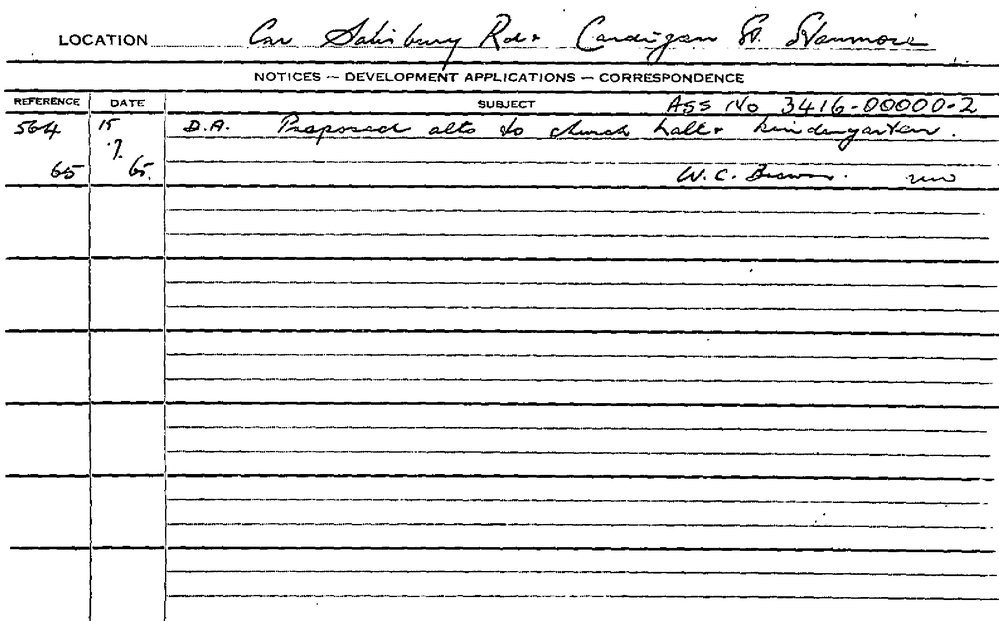 LOCATION Cnr Salisbury Rd & Cardigan St. Stanmore
NOTICES — DEVELOPMENT APPLICATIONS — CORRESPONDENCE
REFERENCE DATE SUBJECT ASS No 3416-00000-2
564 15 D.A. Proposed alts to church hall & kindergarten.
7.
65 65. W. C. Brown.